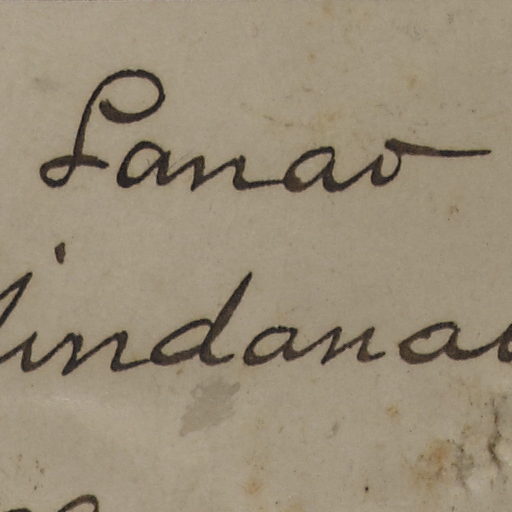 Lanao
Mindanao